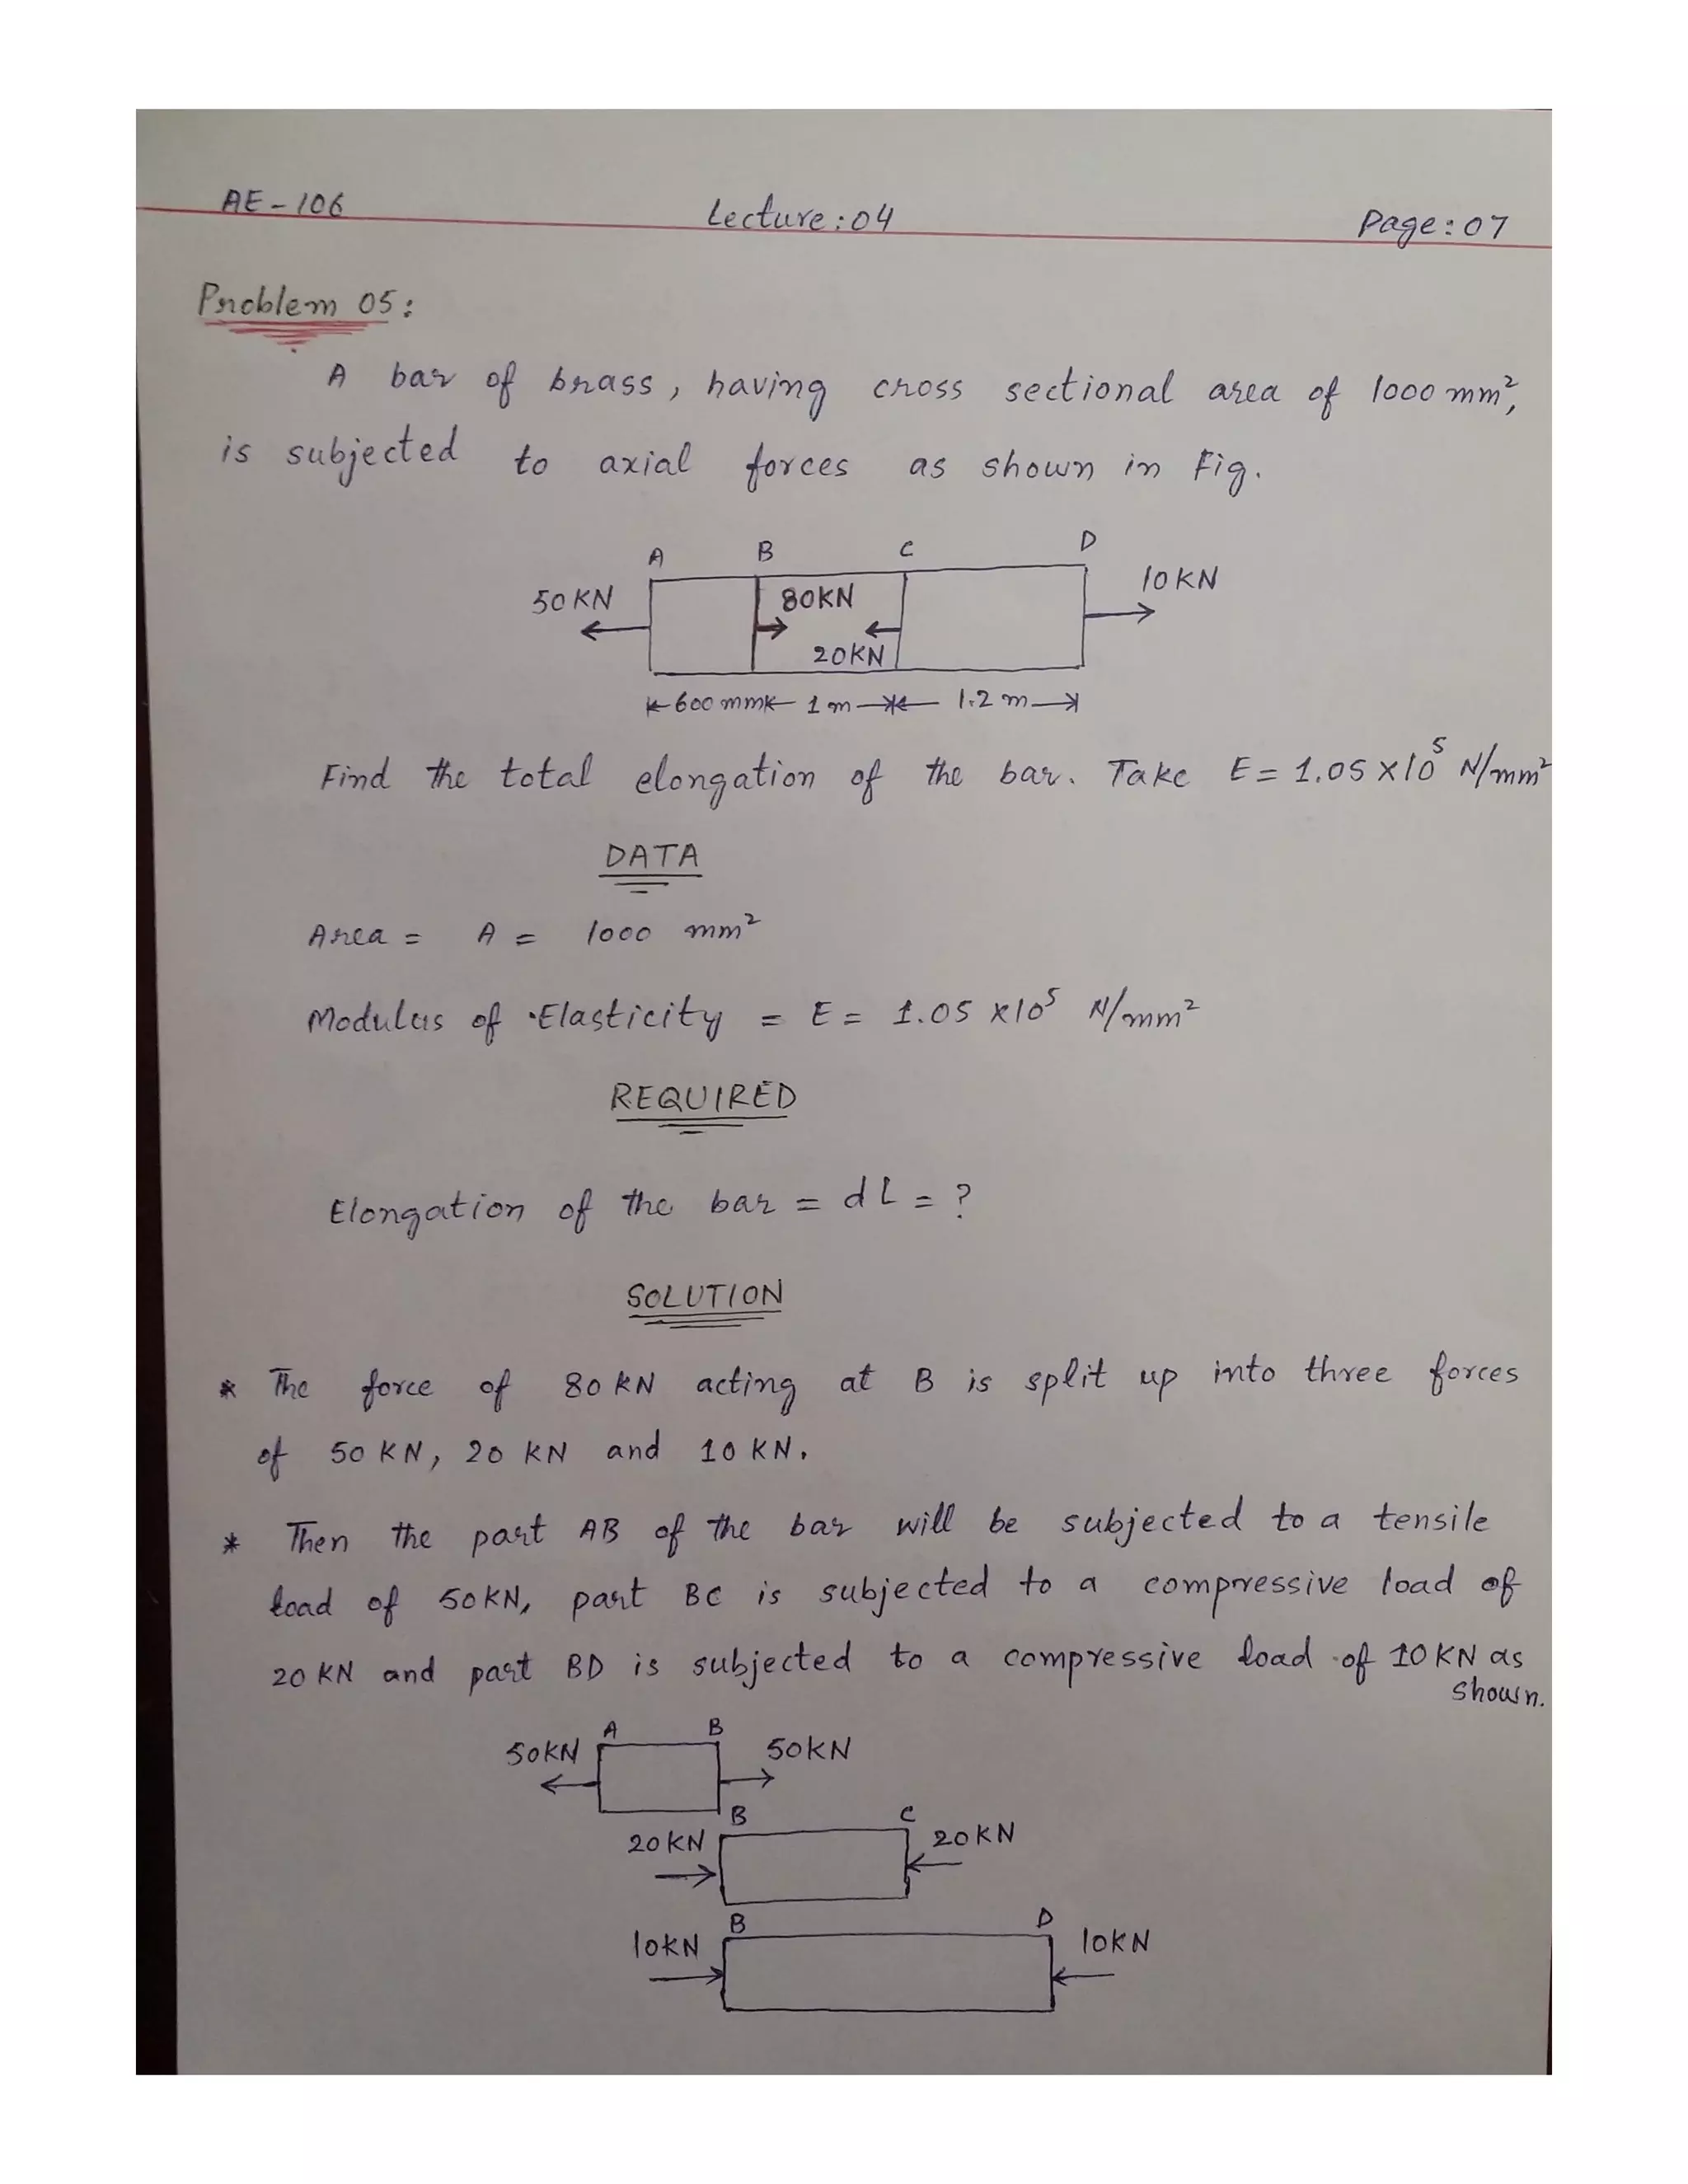 AE-106 Lecture:04 Page:07
Problem 05:
A bar of brass, having cross sectional area of 1000 mm²,
is subjected to axial forces as shown in Fig.
A B C D
50 KN 80KN 20KN 10KN
600 mm 1 m 1.2 m
Find the total elongation of the bar. Take E = 1.05 X10⁵ N/mm²
DATA
Area = A = 1000 mm²
Modulus of Elasticity = E = 1.05 x10⁵ N/mm²
REQUIRED
Elongation of the bar = dL = ?
SOLUTION
* The force of 80 KN acting at B is split up into three forces
of 50 KN, 20 KN and 10 KN.
* Then the part AB of the bar will be subjected to a tensile
load of 50KN, part BC is subjected to a compressive load of
20 KN and part BD is subjected to a compressive load of 10 KN as
shown.
A B
50KN 50KN
B C
20KN 20KN
B D
10KN 10KN